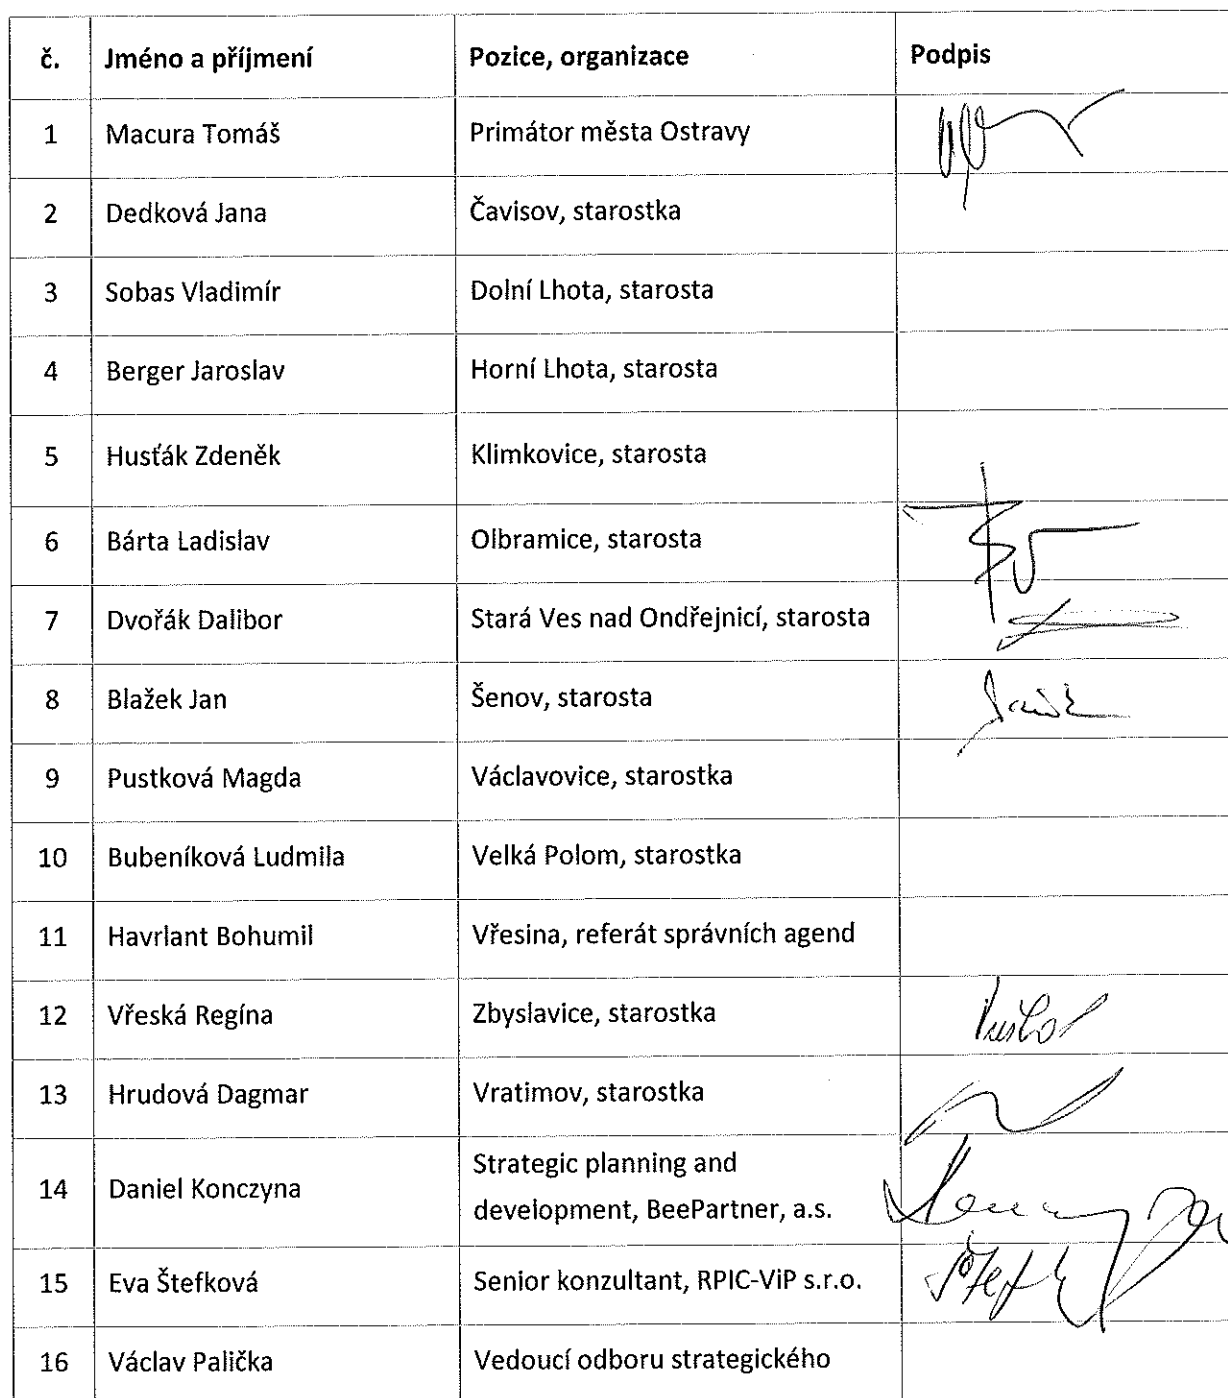 č. Jméno a příjmení Pozice, organizace Podpis
1 Macura Tomáš Primátor města Ostravy
2 Dedková Jana Čavisov, starostka
3 Sobas Vladimír Dolní Lhota, starosta
4 Berger Jaroslav Horní Lhota, starosta
5 Husťák Zdeněk Klimkovice, starosta
6 Bárta Ladislav Olbramice, starosta
7 Dvořák Dalibor Stará Ves nad Ondřejnicí, starosta
8 Blažek Jan Šenov, starosta
9 Pustková Magda Václavovice, starostka
10 Bubeníková Ludmila Velká Polom, starostka
11 Havrlant Bohumil Vřesina, referát správních agend
12 Vřeská Regína Zbyslavice, starostka
13 Hrudová Dagmar Vratimov, starostka
14 Daniel Konczyna Strategic planning and
development, BeePartner, a.s.
15 Eva Štefková Senior konzultant, RPIC-ViP s.r.o.
16 Václav Palička Vedoucí odboru strategického